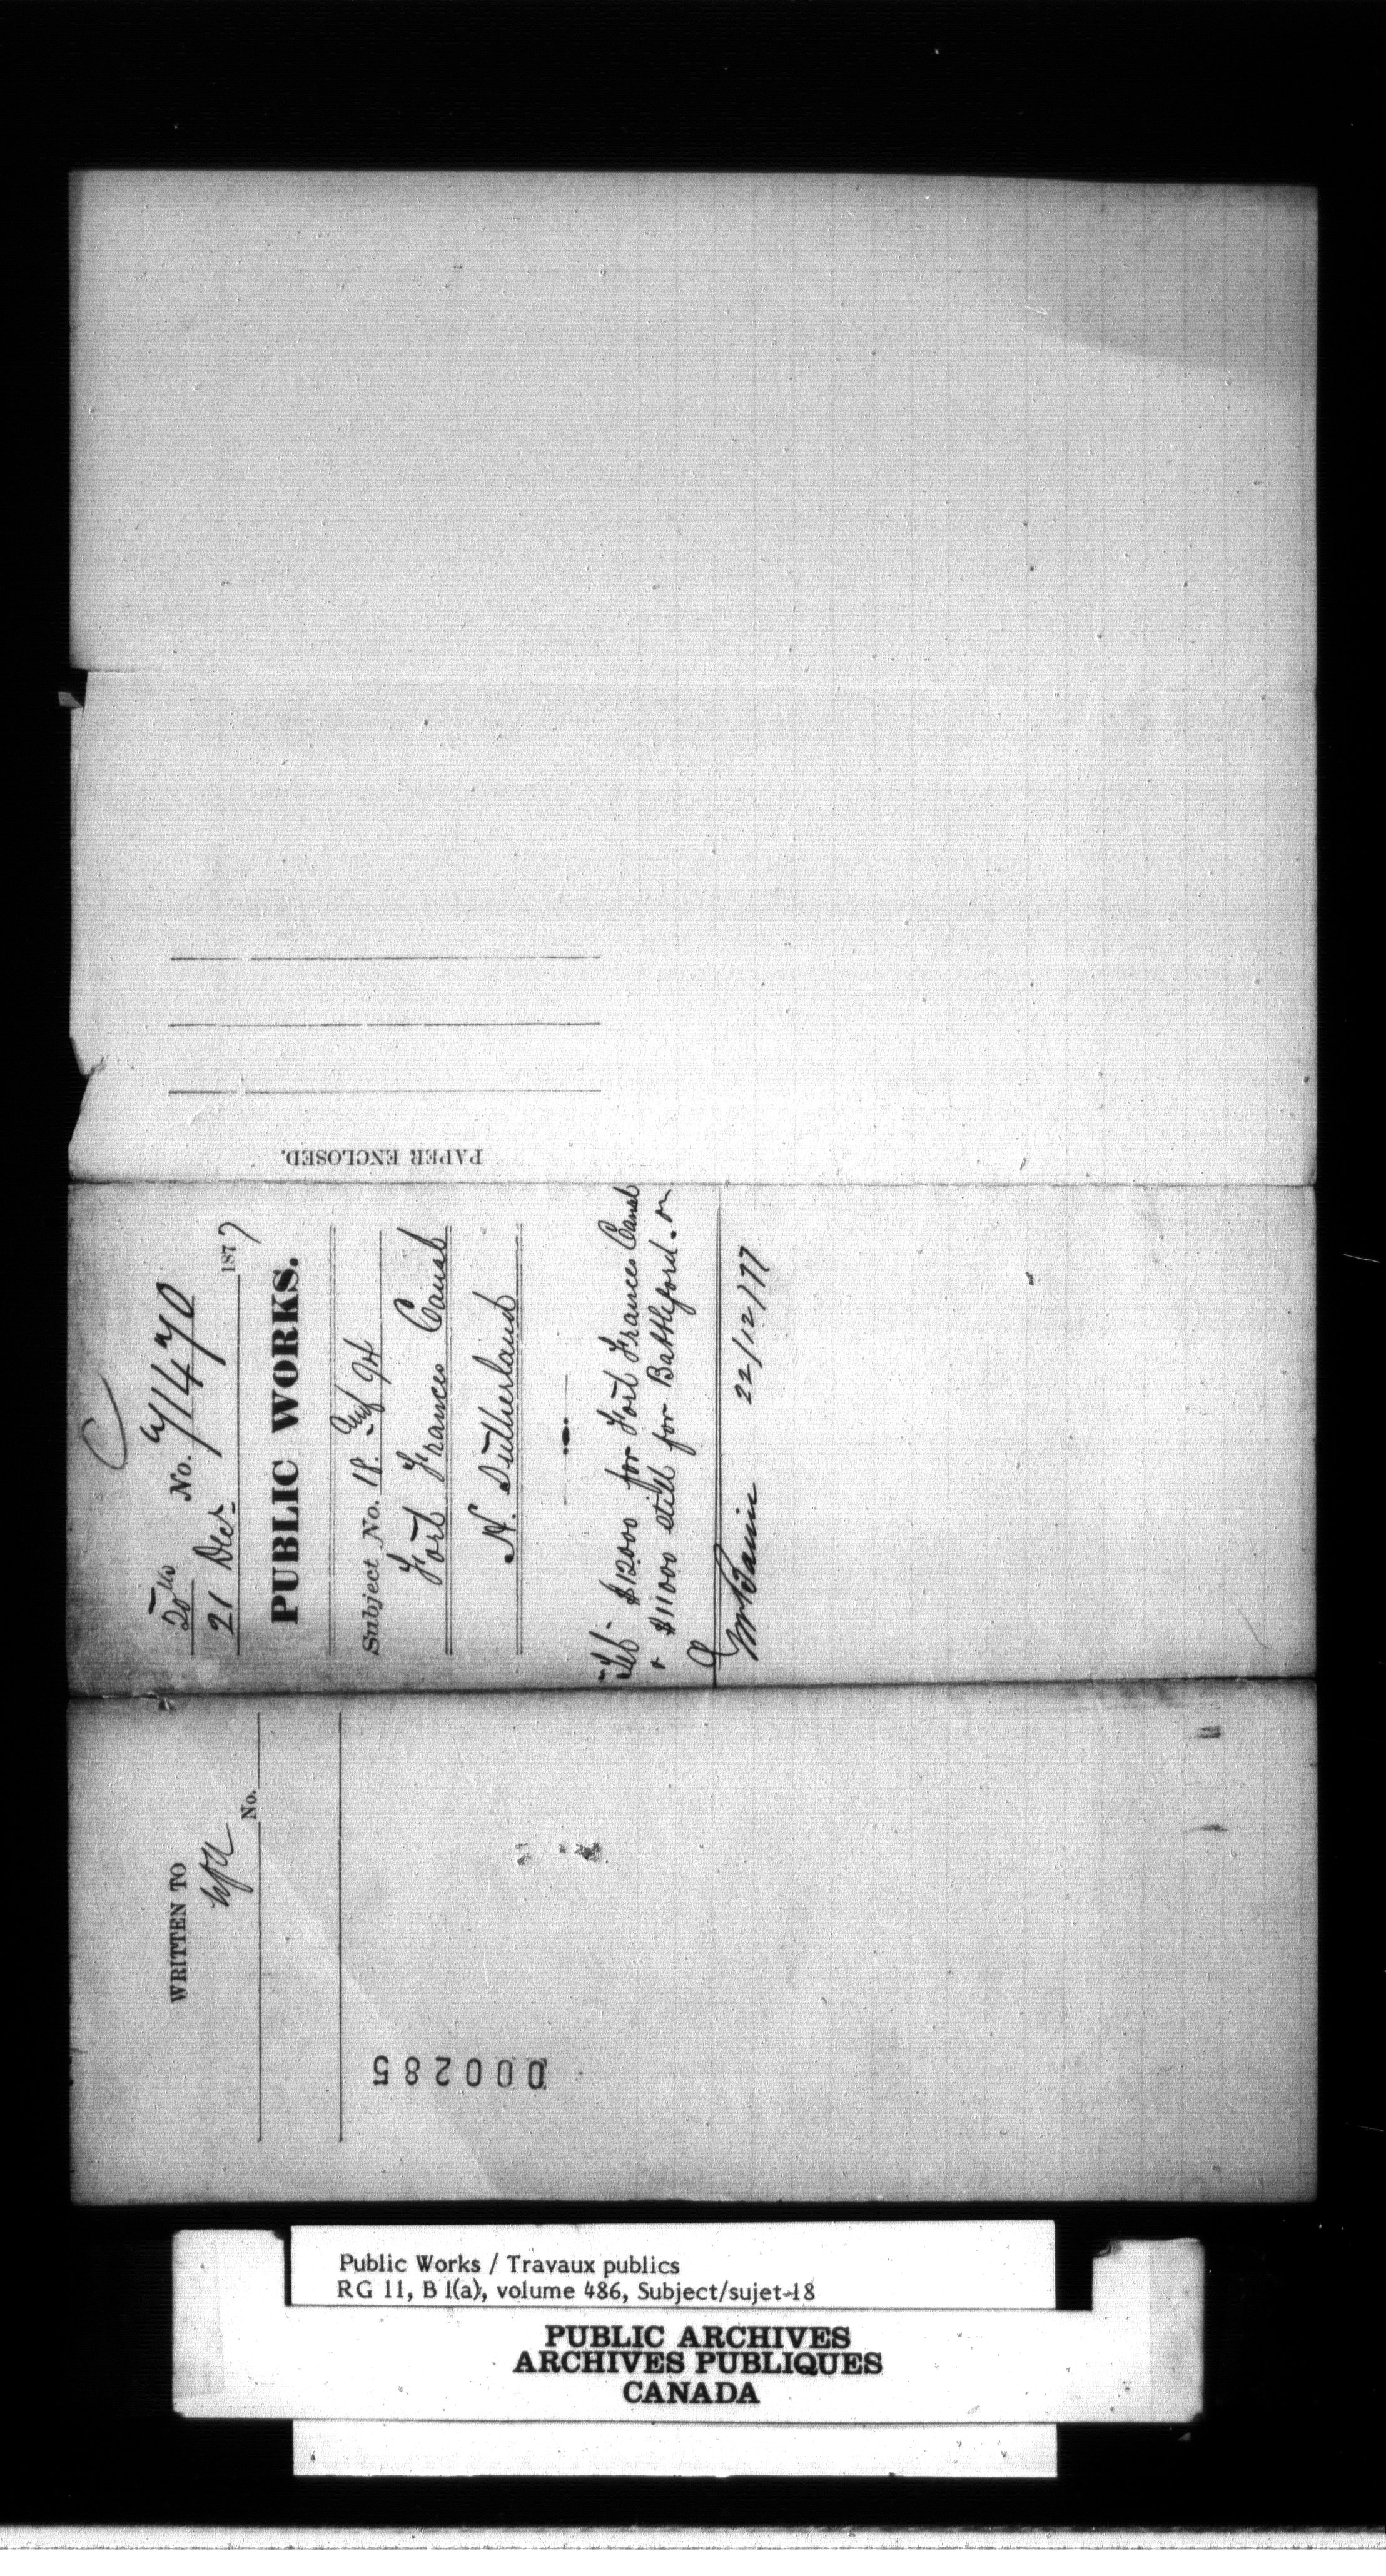 C
20th No. 71470
21 Decr 1877
PUBLIC WORKS.
Subject No. 18.
Fort Frances Canal
H. Sutherland
Tel- $12000 for Fort Frances Canal
+ $11000 still for Battleford.
22/12/77
PAPER ENCLOSED.
WRITTEN TO
No.
000285
Public Works / Travaux publics
RG 11, B 1(a), volume 486, Subject/sujet-18
PUBLIC ARCHIVES
ARCHIVES PUBLIQUES
CANADA